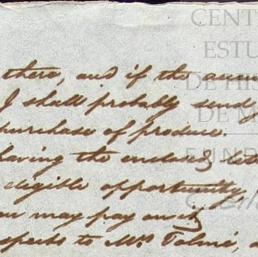 there, and if the
I shall probably send
purchase of produce.
having the enclosed
eligible opportunity
may pay on it
to Mrs Tolmé,
CENT
ESTU
DE HIS
DE M
FUND